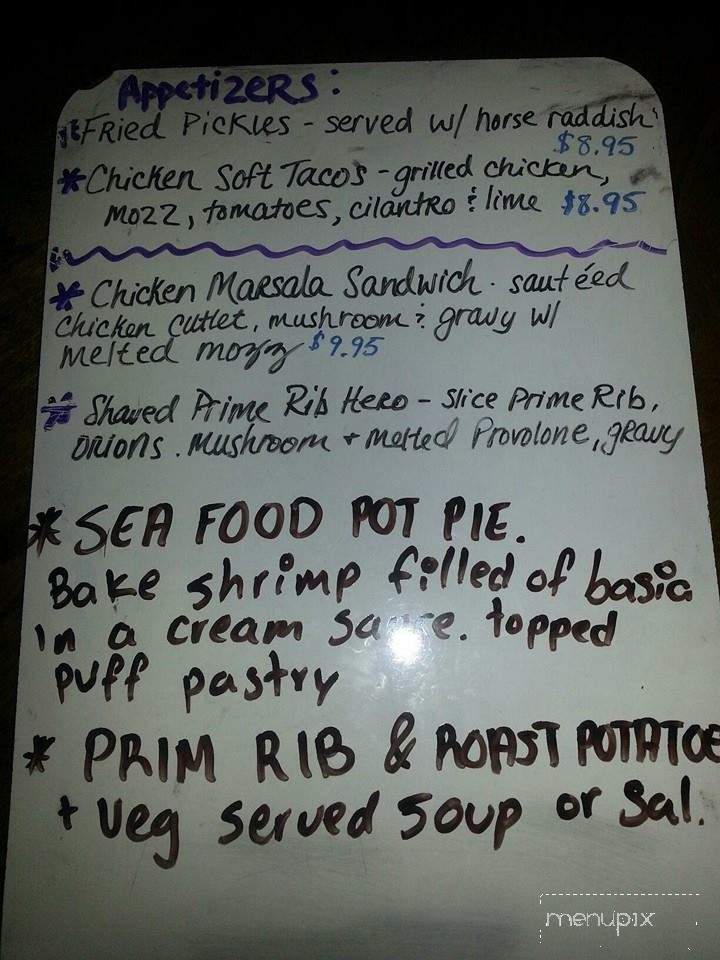 Appetizers:
*Fried Pickles - served w/ horse raddish
$8.95
*Chicken Soft Tacos - grilled chicken,
mozz, tomatoes, cilantro & lime $8.95
* Chicken Marsala Sandwich. sautéed
chicken cutlet, mushroom & gravy w/
melted mozz $9.95
* Shaved Prime Rib Hero - slice Prime Rib,
onions. mushroom + melted Provolone, gravy
* SEA FOOD POT PIE.
Bake shrimp filled of basic
in a cream sauce. topped
puff pastry
* PRIM RIB & ROAST POTATOE
+ veg served soup or sal.
menupix